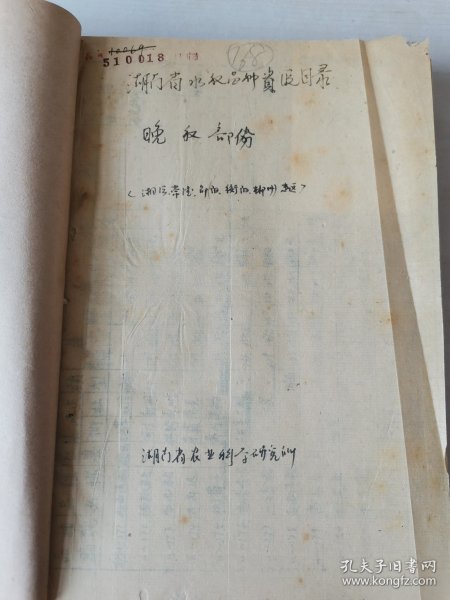 510018
168
湖南省水稻品种资源目录
晚稻部份
(湘潭、常德、邵阳、衡阳、郴州专区)
湖南省农业科学研究所
孔夫子旧书网
www.kongfz.com